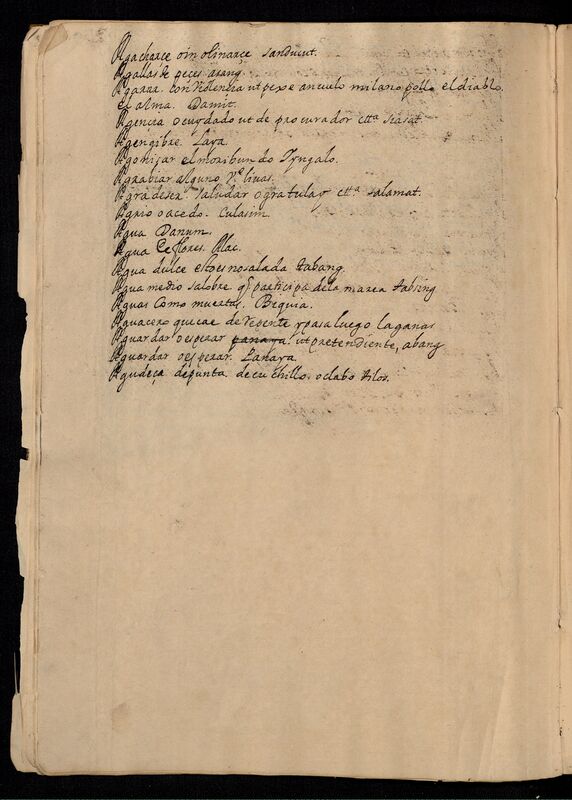 Agacharce o inclinarçe sanducut.
Agallas de peces. arang.
Agarrar. con violencia ut pexe ançuelo milano pollo el diablo.
el alma. Damit.
Agencia o cuydado ut de procurador ettª. sicasat
Agengibre. Laya.
Agoniçar el moribundo Tyngalo.
Agrabiar alguno
Agradeser. saludar o gratular ettª. salamat.
Agrio o acedo. Culasim.
Agua Danum.
Agua De flores. Alac.
Agua dulce esto es no salada tabang.
Agua medio salobre q̃ participa de la marea tabsing
Aguas como muertas. Bequia.
Aguacero que cae de repente y pasa luego laganas
Aguardar o esperar. ut pretendiente, abang
Aguardar o esperar. Lanaya
Agudeça de punta. de cuchillo. o clabo tilos.